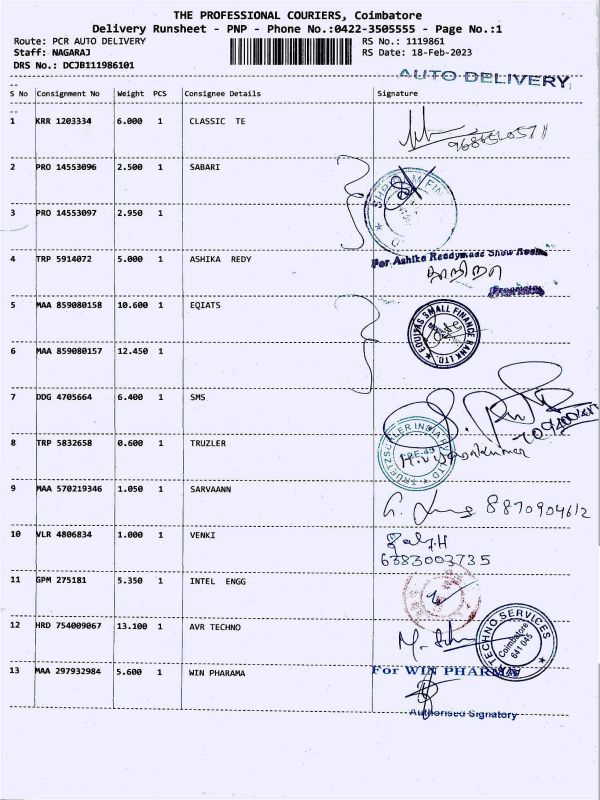 THE PROFESSIONAL COURIERS, Coimbatore
Delivery Runsheet - PNP - Phone No.:0422-3505555 - Page No.:1
Route: PCR AUTO DELIVERY RS No.: 1119861
Staff: NAGARAJ RS Date: 18-Feb-2023
DRS No.: DCJB111986101
AUTO DELIVERY
S No Consignment No Weight PCS Consignee Details Signature
1 KRR 1203334 6.000 1 CLASSIC TE
2 PRO 14553096 2.500 1 SABARI
3 PRO 14553097 2.950 1
4 TRP 5914072 5.000 1 ASHIKA REDY
For Ashika Readymade Show Room
5 MAA 859080158 10.600 1 EQIATS
EQUITAS SMALL FINANCE BANK LTD.
6 MAA 859080157 12.450 1
7 DDG 4705664 6.400 1 SMS
8 TRP 5832658 0.600 1 TRUZLER
TRUETZSCHLER INDIA PVT. LTD.
9 MAA 570219346 1.050 1 SARVAANN
8870904612
10 VLR 4806834 1.000 1 VENKI
6383003735
11 GPM 275181 5.350 1 INTEL ENGG
12 HRD 754009067 13.100 1 AVR TECHNO
TECHNO SERVICES
Coimbatore
641 045
13 MAA 297932984 5.600 1 WIN PHARAMA
For WIN PHARMA
Authorised Signatory